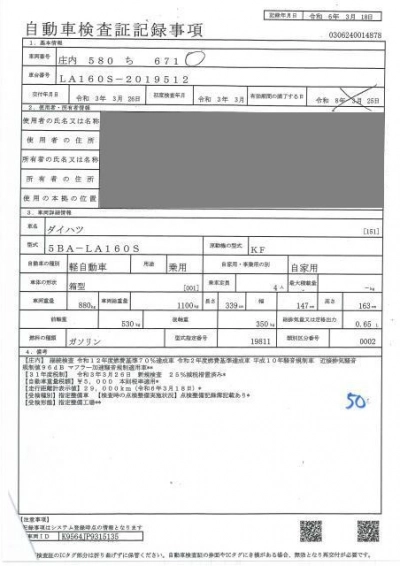 記録年月日 令和 6年 3月 18日
自動車検査証記録事項
0306240014878
1. 基本情報
車両番号 庄内 580 ち 671
車台番号 LA160S-2019512
交付年月日 令和 3年 3月 26日 初度検査年月 令和 3年 3月 有効期間の満了する日 令和 8年 3月 25日
2. 使用者・所有者情報
使用者の氏名又は名称
使用者の住所
所有者の氏名又は名称
所有者の住所
使用の本拠の位置
3. 車両詳細情報
車名 ダイハツ [151]
型式 5BA-LA160S 原動機の型式 KF
自動車の種別 軽自動車 用途 乗用 自家用・事業用の別 自家用
車体の形状 箱型 [001] 乗車定員 4人 最大積載量 -kg
車両重量 880kg 車両総重量 1100kg 長さ 339cm 幅 147cm 高さ 163cm
前軸重 530kg 後軸重 350kg 総排気量又は定格出力 0.65L
燃料の種類 ガソリン 型式指定番号 19811 類別区分番号 0002
4. 備考
[庄内] 継続検査 令和12年度燃費基準70%達成車 令和2年度燃費基準達成車 平成10年騒音規制車 近接排気騒音
規制値96dB マフラー加速騒音規制適用車**
[31年度税制] 令和3年3月26日 新規検査 25%減税措置済み*
[自動車重量税額] ¥5,000 本則税率適用*
[走行距離計表示値] 29,000km (令和6年3月18日)*
[受検種別] 指定整備車 [検査時の点検整備実施状況] 点検整備記録簿記載あり*
[受検形態] 指定整備工場**
50
【注意事項】
車両ID K9564JP9315135